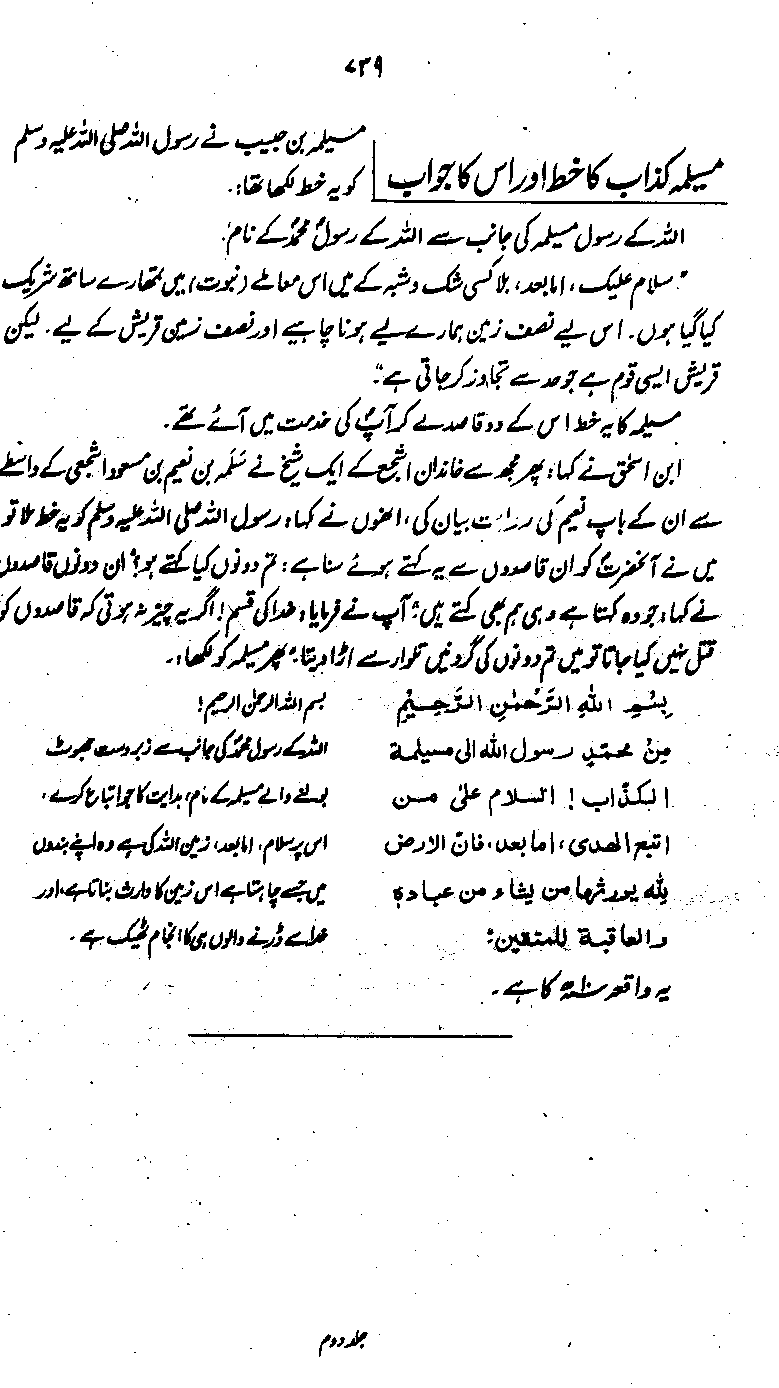 ۷۳۹
مسیلمہ کذاب کا خط اور اس کا جواب
مسیلمہ بن حبیب نے رسول اللہ صلی اللہ علیہ وسلم
کو یہ خط لکھا تھا:۔
اللہ کے رسول مسیلمہ کی جانب سے اللہ کے رسولؐ محمدؐ کے نام:
"سلام علیک، امابعد، بلاکسی شک و شبہ کے میں اس معاملے (نبوت) میں تمھارے ساتھ شریک
کیا گیا ہوں۔ اس لیے نصف زمین ہمارے لیے ہونا چاہیے اور نصف زمین قریش کے لیے۔ لیکن
قریش ایسی قوم ہے جو حد سے تجاوز کر جاتی ہے"۔
مسیلمہ کا یہ خط اس کے دو قاصد لے کر آپؐ کی خدمت میں آئے تھے۔
ابن اسحٰق نے کہا: پھر مجھ سے خاندان اشجع کے ایک شیخ نے سَلَمہ بن نعیم بن مسعود اشجعی کے واسطے
سے ان کے باپ نعیم کی روایت بیان کی، انھوں نے کہا: رسول اللہ صلی اللہ علیہ وسلم کو یہ خط ملا تو
میں نے آنحضرتؐ کو ان قاصدوں سے یہ کہتے ہوئے سنا ہے: تم دونوں کیا کہتے ہو؟ ان دونوں قاصدوں
نے کہا: جو وہ کہتا ہے وہی ہم بھی کہتے ہیں؛ آپ نے فرمایا: خدا کی قسم! اگر یہ چیز نہ ہوتی کہ قاصدوں کو
قتل نہیں کیا جاتا تو میں تم دونوں کی گردنیں تلوار سے اڑا دیتا؛ پھر مسیلمہ کو لکھا:۔
بِسْمِ اللهِ الرَّحْمٰنِ الرَّحِيْمِ
مِنْ محمّدٍ رسول الله الى مسيلمة
الكذّاب! السلام علىٰ من
اتبع الهدى، اما بعد، فانّ الارض
لِله يورثها من يشاء من عباده
والعاقبة للمتقين:
بسم اللہ الرحمٰن الرحیم!
اللہ کے رسول محمدؐ کی جانب سے زبردست جھوٹ
بولنے والے مسیلمہ کے نام، ہدایت کا جو اتباع کرے،
اس پر سلام، امابعد، زمین اللہ کی ہے وہ اپنے بندوں
میں جسے چاہتا ہے اس زمین کا وارث بناتا ہے، اور
خدا سے ڈرنے والوں ہی کا انجام ٹھیک ہے۔
یہ واقعہ سنہ کا ہے۔
جلد دوم